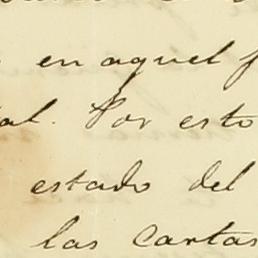 en aquel
al. Por esto
estado del
las Cartas